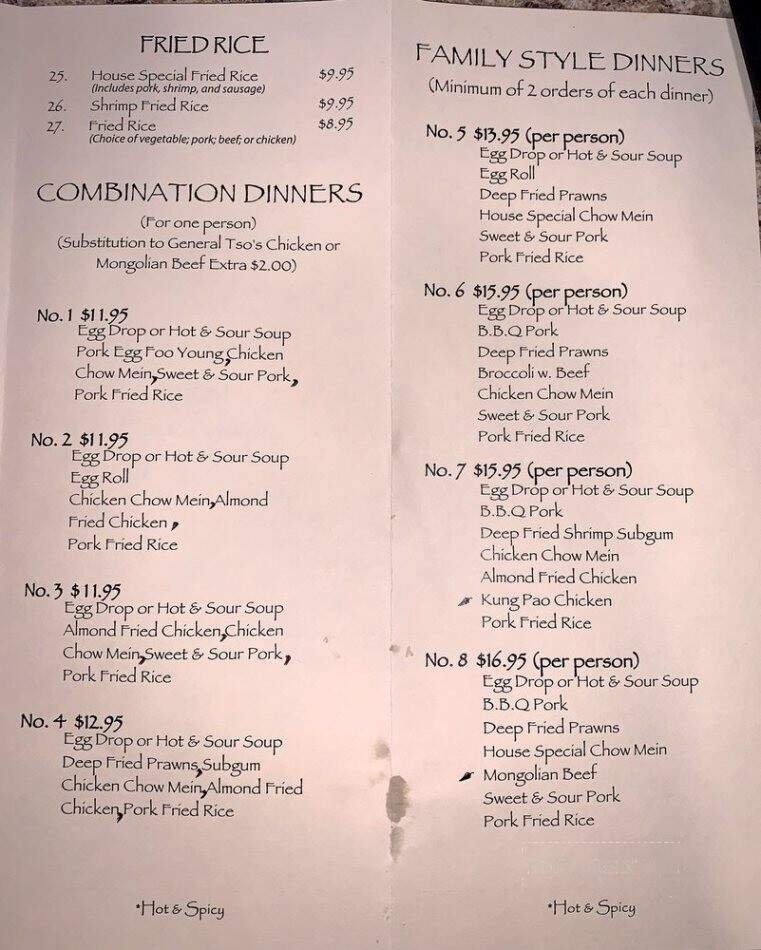 FRIED RICE
25. House Special Fried Rice $9.95
(Includes pork, shrimp, and sausage)
26. Shrimp Fried Rice $9.95
27. Fried Rice $8.95
(Choice of vegetable; pork; beef; or chicken)
COMBINATION DINNERS
(For one person)
(Substitution to General Tso's Chicken or
Mongolian Beef Extra $2.00)
No. 1 $11.95
Egg Drop or Hot & Sour Soup
Pork Egg Foo Young, Chicken
Chow Mein, Sweet & Sour Pork,
Pork Fried Rice
No. 2 $11.95
Egg Drop or Hot & Sour Soup
Egg Roll
Chicken Chow Mein, Almond
Fried Chicken,
Pork Fried Rice
No. 3 $11.95
Egg Drop or Hot & Sour Soup
Almond Fried Chicken, Chicken
Chow Mein, Sweet & Sour Pork,
Pork Fried Rice
No. 4 $12.95
Egg Drop or Hot & Sour Soup
Deep Fried Prawns, Subgum
Chicken Chow Mein, Almond Fried
Chicken, Pork Fried Rice
*Hot & Spicy
FAMILY STYLE DINNERS
(Minimum of 2 orders of each dinner)
No. 5 $13.95 (per person)
Egg Drop or Hot & Sour Soup
Egg Roll
Deep Fried Prawns
House Special Chow Mein
Sweet & Sour Pork
Pork Fried Rice
No. 6 $15.95 (per person)
Egg Drop or Hot & Sour Soup
B.B.Q Pork
Deep Fried Prawns
Broccoli w. Beef
Chicken Chow Mein
Sweet & Sour Pork
Pork Fried Rice
No. 7 $15.95 (per person)
Egg Drop or Hot & Sour Soup
B.B.Q Pork
Deep Fried Shrimp Subgum
Chicken Chow Mein
Almond Fried Chicken
Kung Pao Chicken
Pork Fried Rice
No. 8 $16.95 (per person)
Egg Drop or Hot & Sour Soup
B.B.Q Pork
Deep Fried Prawns
House Special Chow Mein
Mongolian Beef
Sweet & Sour Pork
Pork Fried Rice
*Hot & Spicy